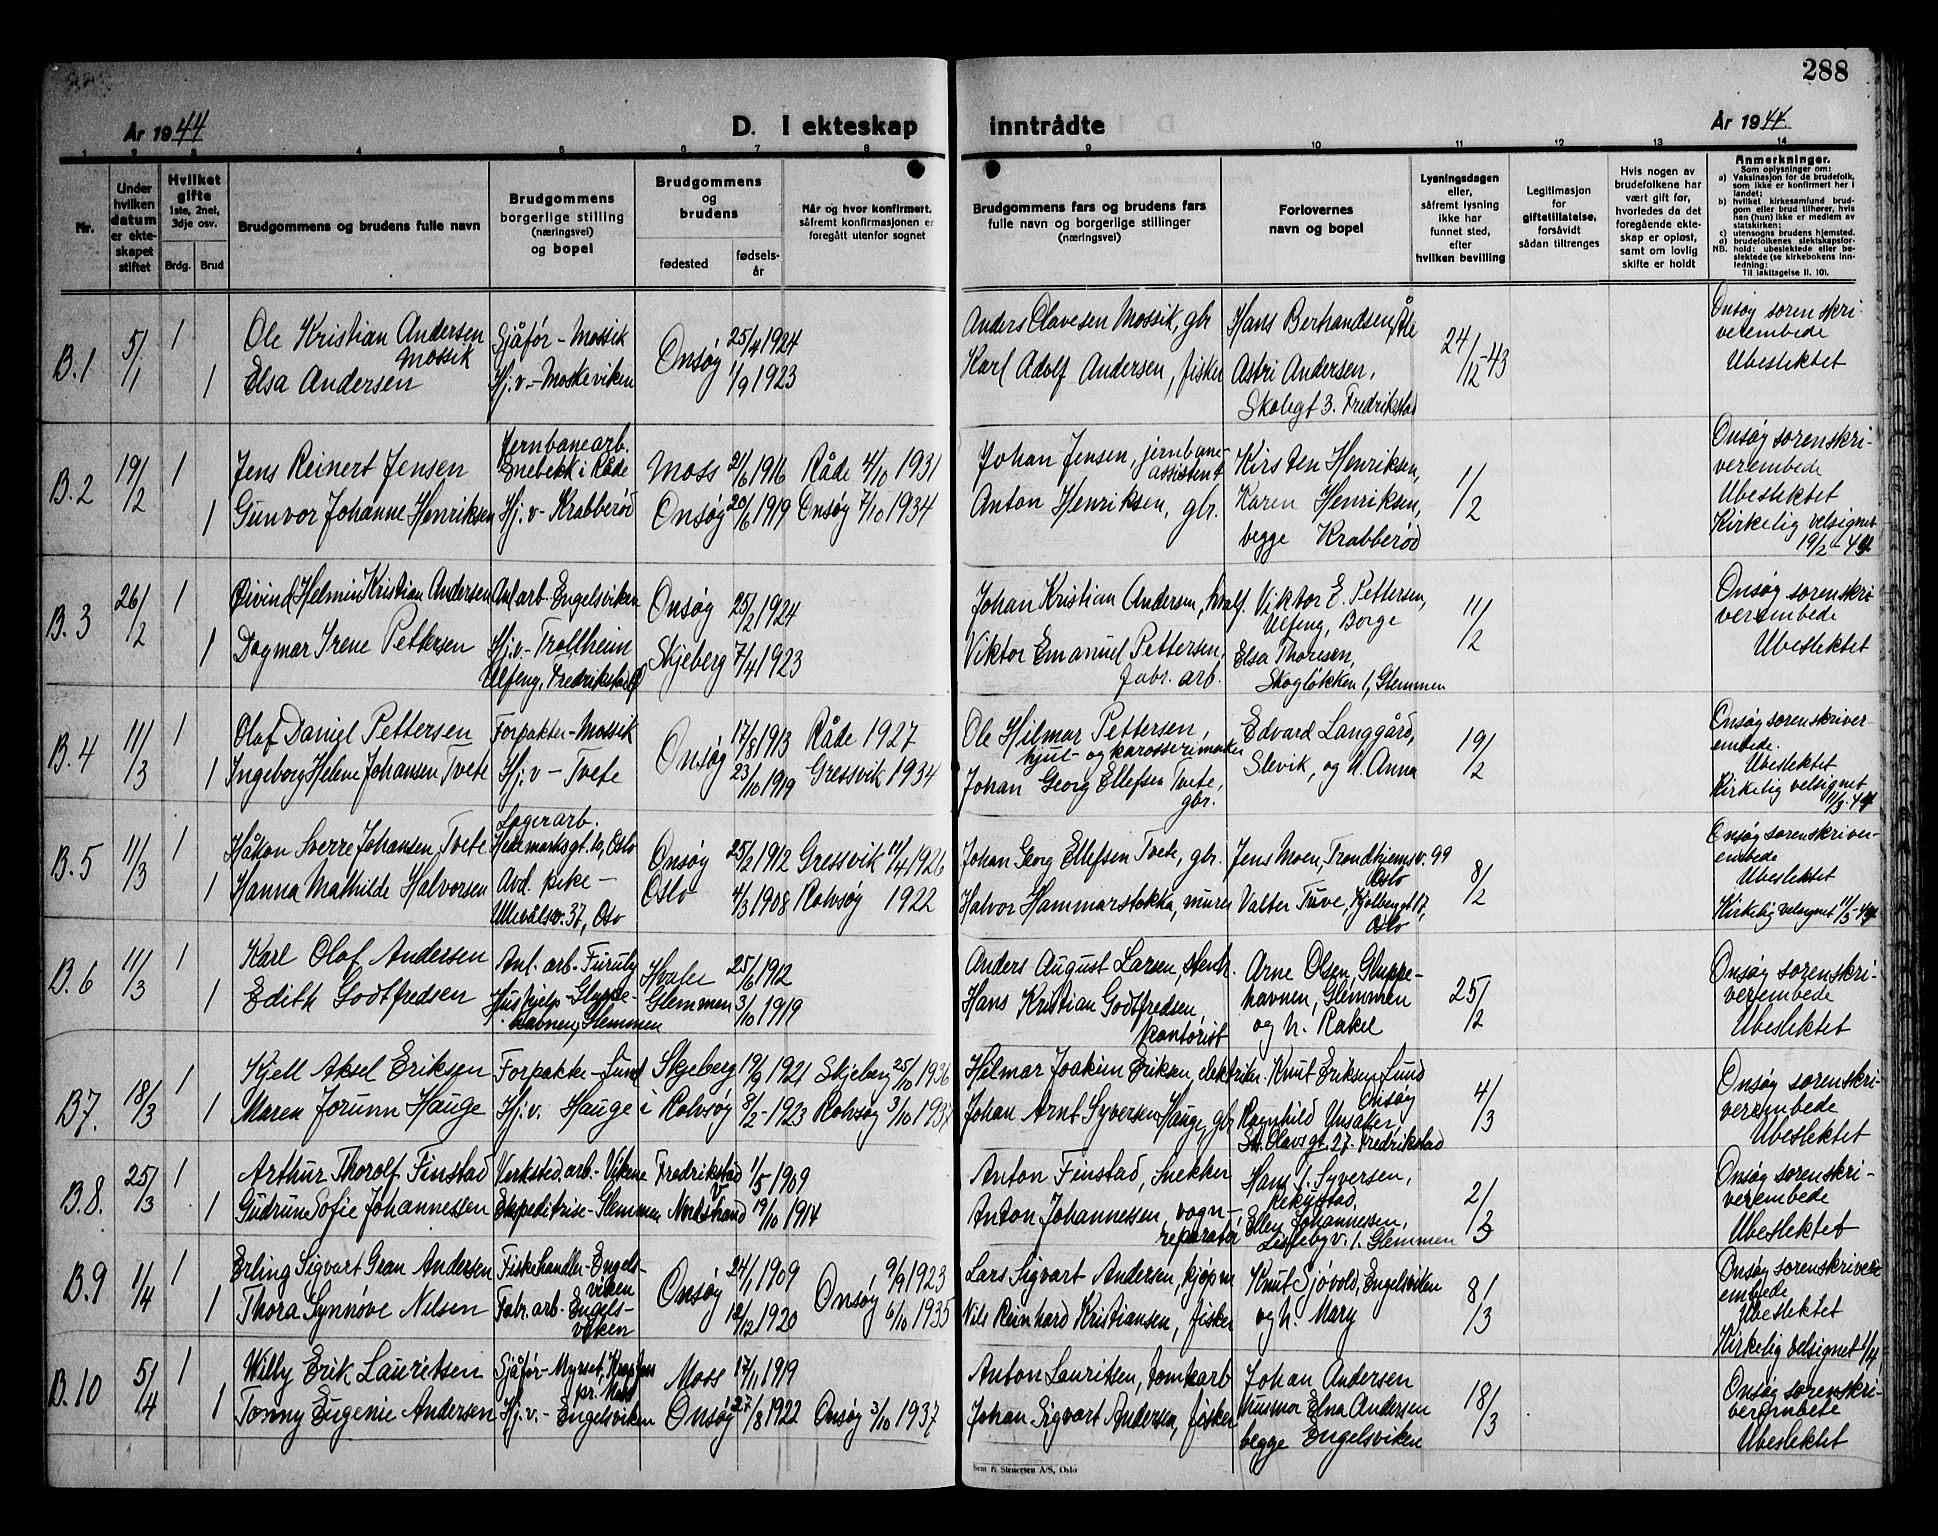 288
År 1944
D. I ekteskap inntrådte
År 1944.
1 2 3 4 5 6 7 8 9 10 11 12 13 14
Nr.
Under hvilken datum er ekteskapet stiftet
Hvilket gifte 1ste, 2net, 3dje osv.
Brdg. Brud
Brudgommens og brudens fulle navn
Brudgommens borgerlige stilling (næringsvei) og bopel
Brudgommens og brudens
fødested
fødselsår
Når og hvor konfirmert, såfremt konfirmasjonen er foregått utenfor sognet
Brudgommens fars og brudens fars fulle navn og borgerlige stillinger (næringsvei)
Forlovernes navn og bopel
Lysningsdagen eller, såfremt lysning ikke har funnet sted, efter hvilken bevilling
Legitimasjon for giftetillatelse, forsåvidt sådan tiltrenges
Hvis nogen av brudefolkene har vært gift før, hvorledes da det foregående ekteskap er opløst, samt om lovlig skifte er holdt
Anmerkninger.
Som oplysninger om:
a) Vaksinasjon for de brudefolk, som ikke er konfirmert her i landet;
b) hvilket kirkesamfund brudgom eller brud tilhører, hvis han (hun) ikke er medlem av statskirken;
c) utensogns brudens hjemsted.
d) brudefolkenes slektskapsforhold: ubeslektede eller beslektede (se kirkebokens innledning;
NB.
Til iakttagelse II. 10).
B.1 5/1 1 Ole Kristian Andersen Mossik Sjåfør - Mossik Onsøy 25/4 1924 Anders Olavesen Mossik, gbr Hans Berhandsen, Åle 24/12-43 Onsøy sorenskriverembede
1 Elsa Andersen Hj.v - Moskeviken 1/9 1923 Karl Adolf Andersen, fisker Astri Andersen, Skolegt 3. Fredrikstad Ubeslektet
B.2 19/2 1 Jens Reinert Jensen Jernbanearb. Enebekk i Råde Moss 21/6 1916 Råde 4/10 1931 Johan Jensen, jernbaneassistent Kirsten Henriksen, 1/2 Onsøy sorenskriverembede
1 Gunvor Johanne Henriksen Hj.v - Krabberød Onsøy 20/6 1919 Onsøy 7/10 1934 Anton Henriksen, gbr. Karen Henriksen, begge Krabberød Ubeslektet
Kirkelig velsignet 19/2 - 44
B.3 26/2 1 Øivind Helmin Kristian Andersen Anl arb. Engelsviken Onsøy 25/2 1924 Johan Kristian Andersen, hvalf. Viktor E. Pettersen, Ulfeng, Borge 11/2 Onsøy sorenskriverembede
1 Dagmar Irene Pettersen Hj.v - Trollheim Ulfeng, Fredrikstad Skjeberg 7/4 1923 Viktor Emanuel Pettersen, fabr. arb. Elsa Thoresen, Skogløkken 1, Glemmen Ubeslektet
B.4 11/3 1 Olaf Daniel Pettersen Forpakter - Mossik Onsøy 17/8 1913 Råde 1927 Ole Hilmar Pettersen, hjul- og karosserimaker Edvard Langgård, 19/2 Onsøy sorenskriverembede.
1 Ingeborg Helene Johansen Tvete Hj.v - Tvete 23/10 1919 Gressvik 1934 Johan Georg Ellefsen Tvete, gbr. Slevik, og h. Anna Ubeslektet
Kirkelig velsignet 11/3-44
B.5 11/3 1 Håkon Sverre Johansen Tvete Lagerarb. Hedemarksgt. 10, Oslo Onsøy 25/2 1912 Gressvik 11/4 1926 Johan Georg Ellefsen Tvete, gbr. Jens Moen, Trondhjemsv. 99 Oslo 8/2 Onsøy sorenskriverembede
1 Hanna Mathilde Halvorsen Avd. pike - Ullevålsv. 37, Oslo Oslo 4/3 1908 Rolvsøy 1922 Halvor Hammarstokka, murer Valter Tuve, Kjølberggt 17, Oslo Ubeslektet
Kirkelig velsignet 11/3-44
B.6 11/3 1 Karl Olaf Andersen Anl. arb. Furuly Hvaler 25/6 1912 Anders August Larsen, stenh. Arne Olsen, Gluppehavnen, Glemmen 25/2 Onsøy sorenskriverembede
1 Edith Godtfredsen Hushjelp - Gluppehavnen, Glemmen Glemmen 3/10 1919 Hans Kristian Godtfredsen, kontorist og h. Rakel Ubeslektet
B7. 18/3 1 Kjell Aksel Eriksen Forpakter - Lund Skjeberg 19/9 1921 Skjeberg 25/10 1936 Hilmar Joakim Eriksen, elektriker Knut Eriksen Lund Onsøy 4/3 Onsøy sorenskriverembede
1 Maren Jorunn Hauge Hj.v. Hauge i Rolvsøy 8/2-1923 Rolvsøy 3/10 1937 Johan Arnt Syversen Hauge, gbr Ragnhild St. Olavsgt. 27. Fredrikstad Ubeslektet
B.8. 25/3 1 Arthur Thorolf Finstad Verksted.arb. - Vikene Fredrikstad V 1/5 1909 Anton Finstad, snekker Hans J. Syversen, Rekustad, 2/3 Onsøy sorenskriverembede
1 Gudrun Sofie Johannessen Ekspeditrise - Glemmen Nordstrand 19/10 1914 Anton Johannessen, vognreparatør Ellen Johannessen, Lislebyv. 1. Glemmen Ubeslektet
B.9 1/4 1 Erling Sigvart Gran Andersen Fiskehandler - Engelsviken Onsøy 24/1 1909 Onsøy 9/9 1923 Lars Sigvart Andersen, kjøpm Knut Sjøvold, Engelsviken 8/3 Onsøy sorenskriverembede
1 Thora Synnøve Nilsen Fabr. arb - Engelsviken 12/12 1920 6/10 1935 Nils Reinhard Kristiansen, fisker og h. Mary Ubeslektet
Kirkelig velsignet 1/4
B.10 5/4 1 Willy Erik Lauritsen Sjåfør - Myrset, pr. Moss Moss 17/11 1919 Anton Lauritsen, tomtearb Johan Andersen 18/3 Onsøy sorenskriverembete
1 Tonny Eugenie Andersen Hj.v. - Engelsviken Onsøy 27/8 1922 Onsøy 3/10 1937 Johan Sigvart Andersen, fisker husmor Elna Andersen begge Engelsviken Ubeslektet
Sem & Stenersen A/S, Oslo